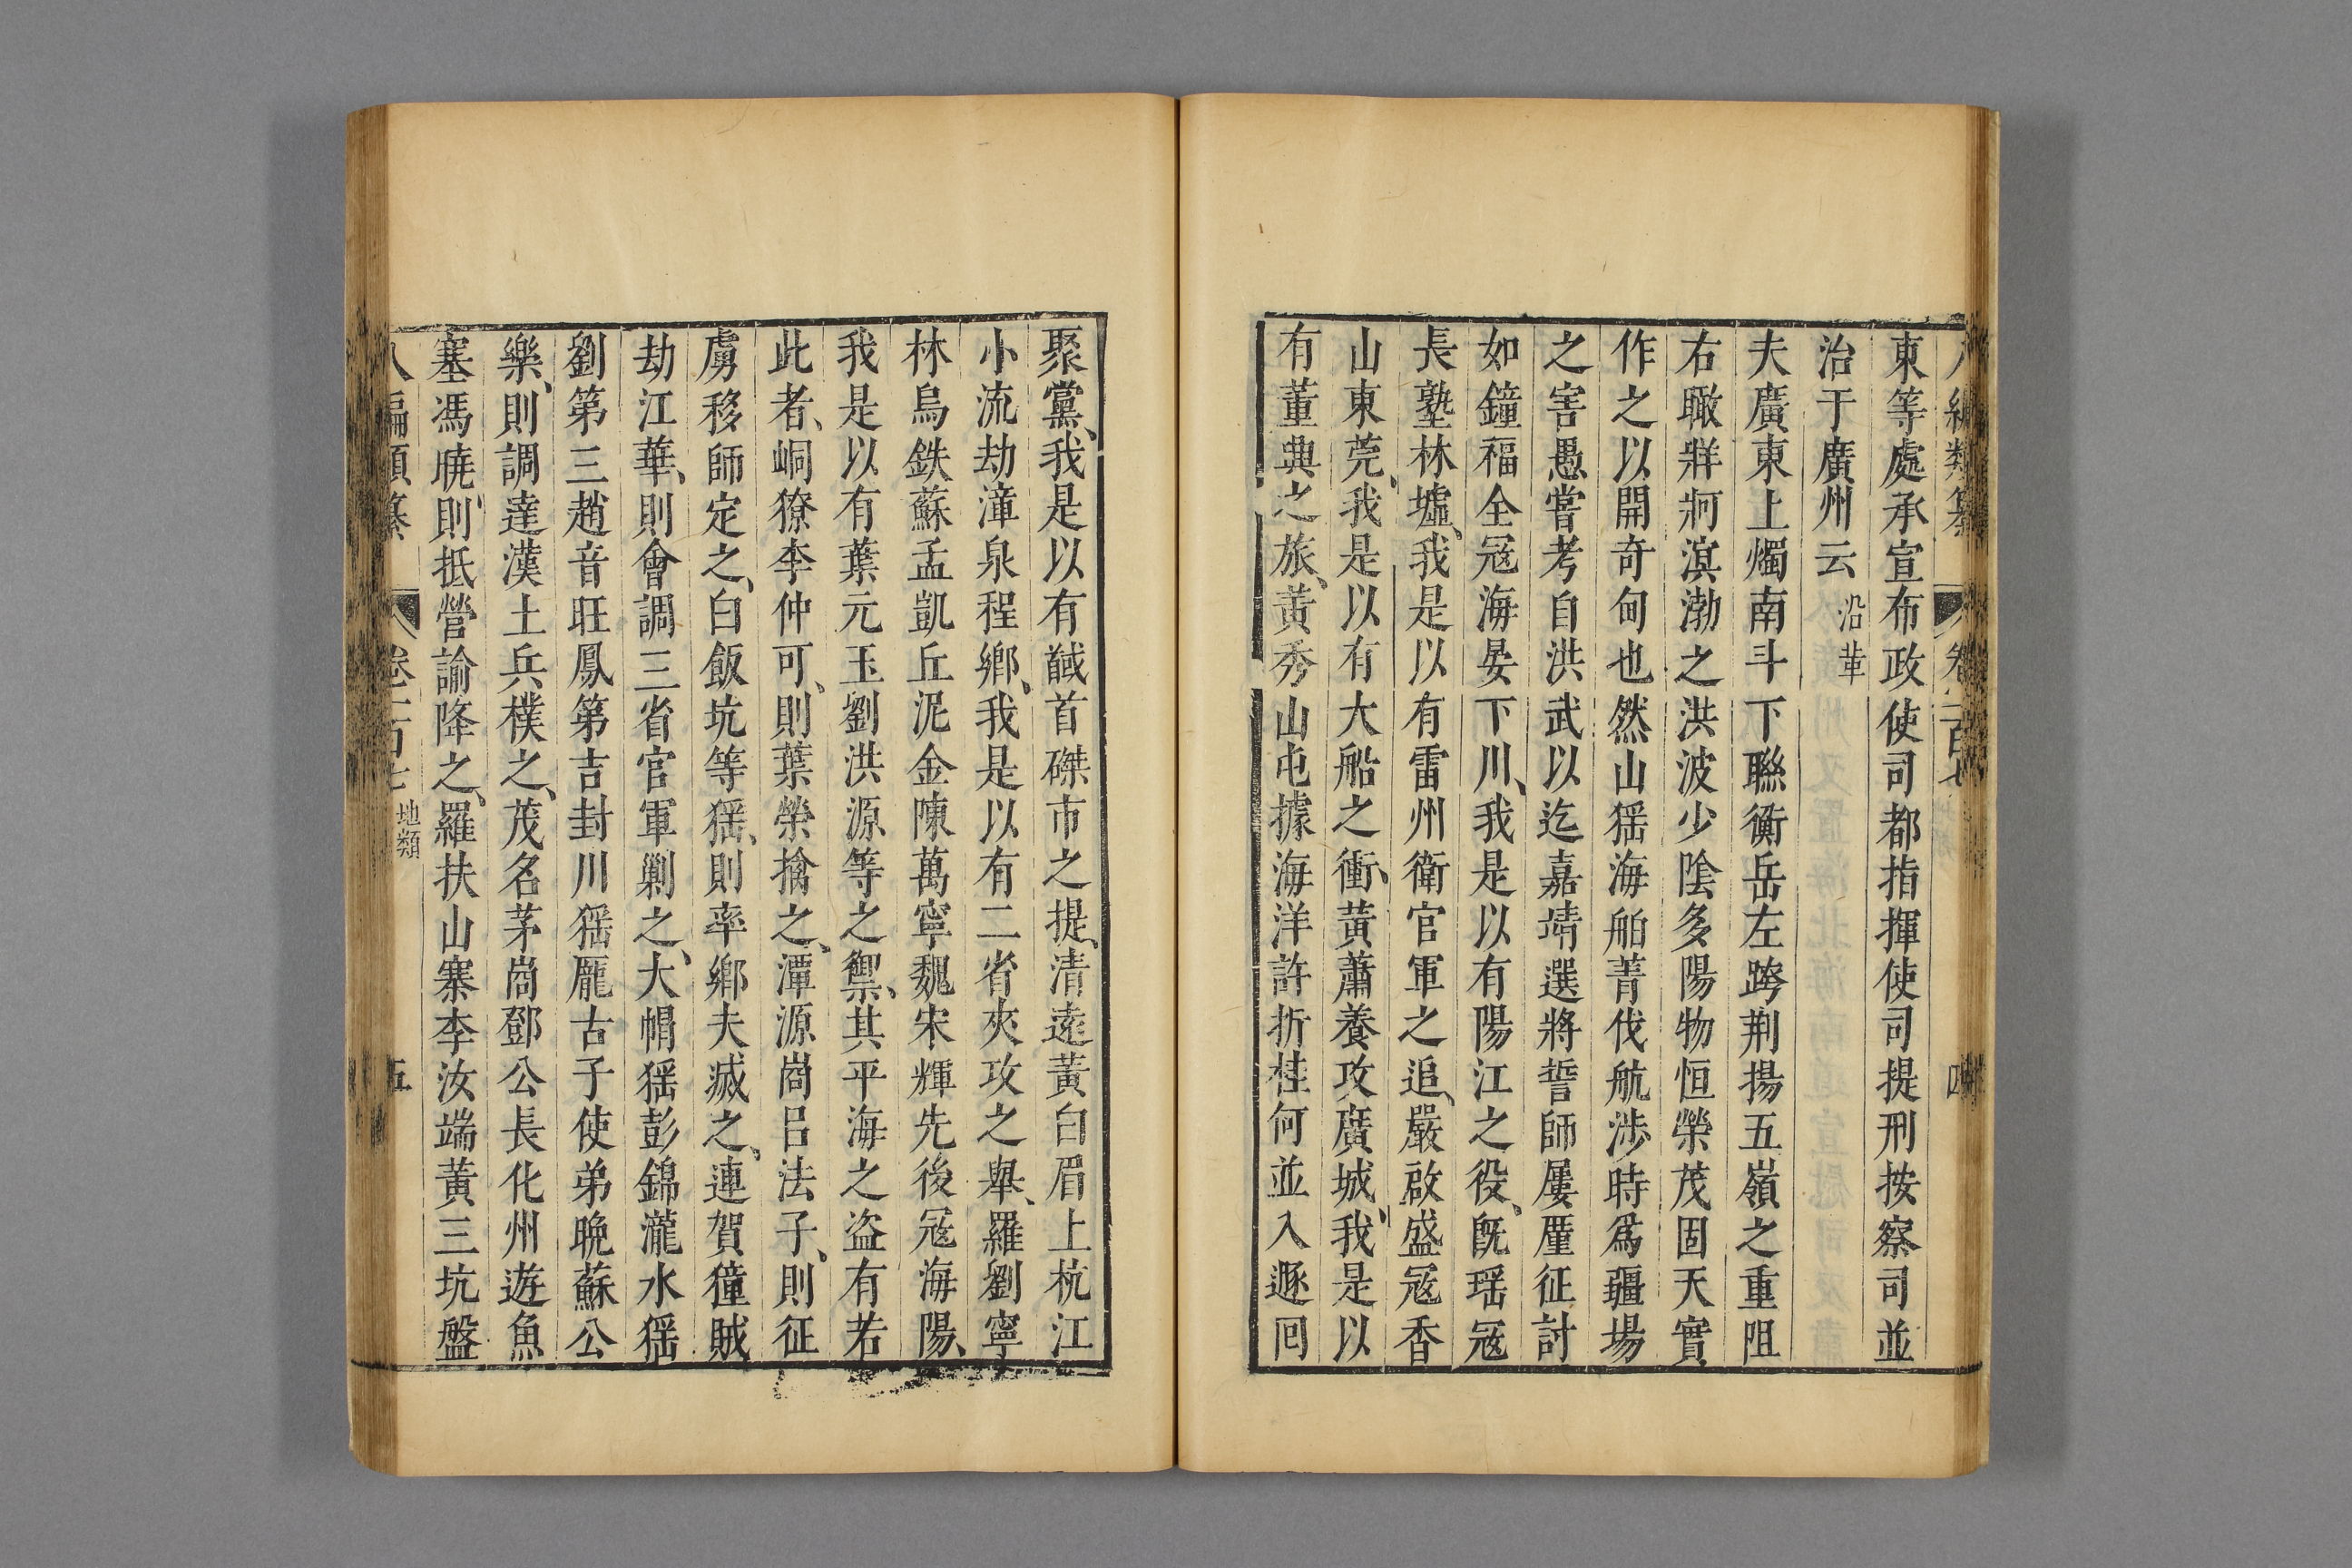 東等處承宣布政使司都指揮使司提刑按察司並
治于廣州云 沿革
夫廣東上燭南斗下聮衡岳左跨荆揚五嶺之重阻
右瞰牂牁溟渤之洪波少陰多陽物恒榮茂固天實
作之以開奇甸也然山猺海舶菁伐航涉時爲疆場
之害愚嘗考自洪武以迄嘉靖選將誓師屢厪征討
如鐘福全冦海晏下川、我是以有陽江之役、旣瑶冦
長墊林墟、我是以有雷州衛官軍之追、嚴啟盛冦香
山東莞、我是以有大船之衝、黃蕭養攻廣城、我是以
有董典之旅、黃秀山屯據海洋許折桂何並入遯囘
聚黨、我是以有馘首磔市之提、清遠黃白眉上杭江
小流劫漳泉程鄉、我是以有二省夾攻之舉、羅劉寧
林烏鉄蘇孟凱丘泥金陳萬寧魏宋輝先後冦海陽、
我是以有葉元玉劉洪源等之禦、其平海之盗有若
此者、峒獠李仲可、則葉榮擒之、潭源崗呂法子、則征
虜移師定之、白飯坑等猺、則率鄉夫㓕之、連賀獞賊
劫江華、則會調三省官軍剿之、大帽猺彭錦瀧水猺
劉第三趙音旺鳳第吉封川猺龎古子使弟晩蘇公
樂、則調達漢土兵樸之、茂名茅崗鄧公長化州遊魚
塞馮曉、則抵營諭降之、羅扶山寨李汝端黃三坑盤
八編類纂 卷一百七 地類 五